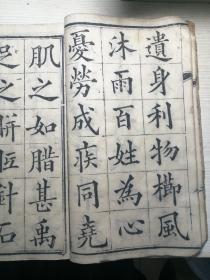 遺身利物櫛風
沐雨百姓為心
憂勞成疾同堯
肌之如腊甚禹
足之胼胝針石